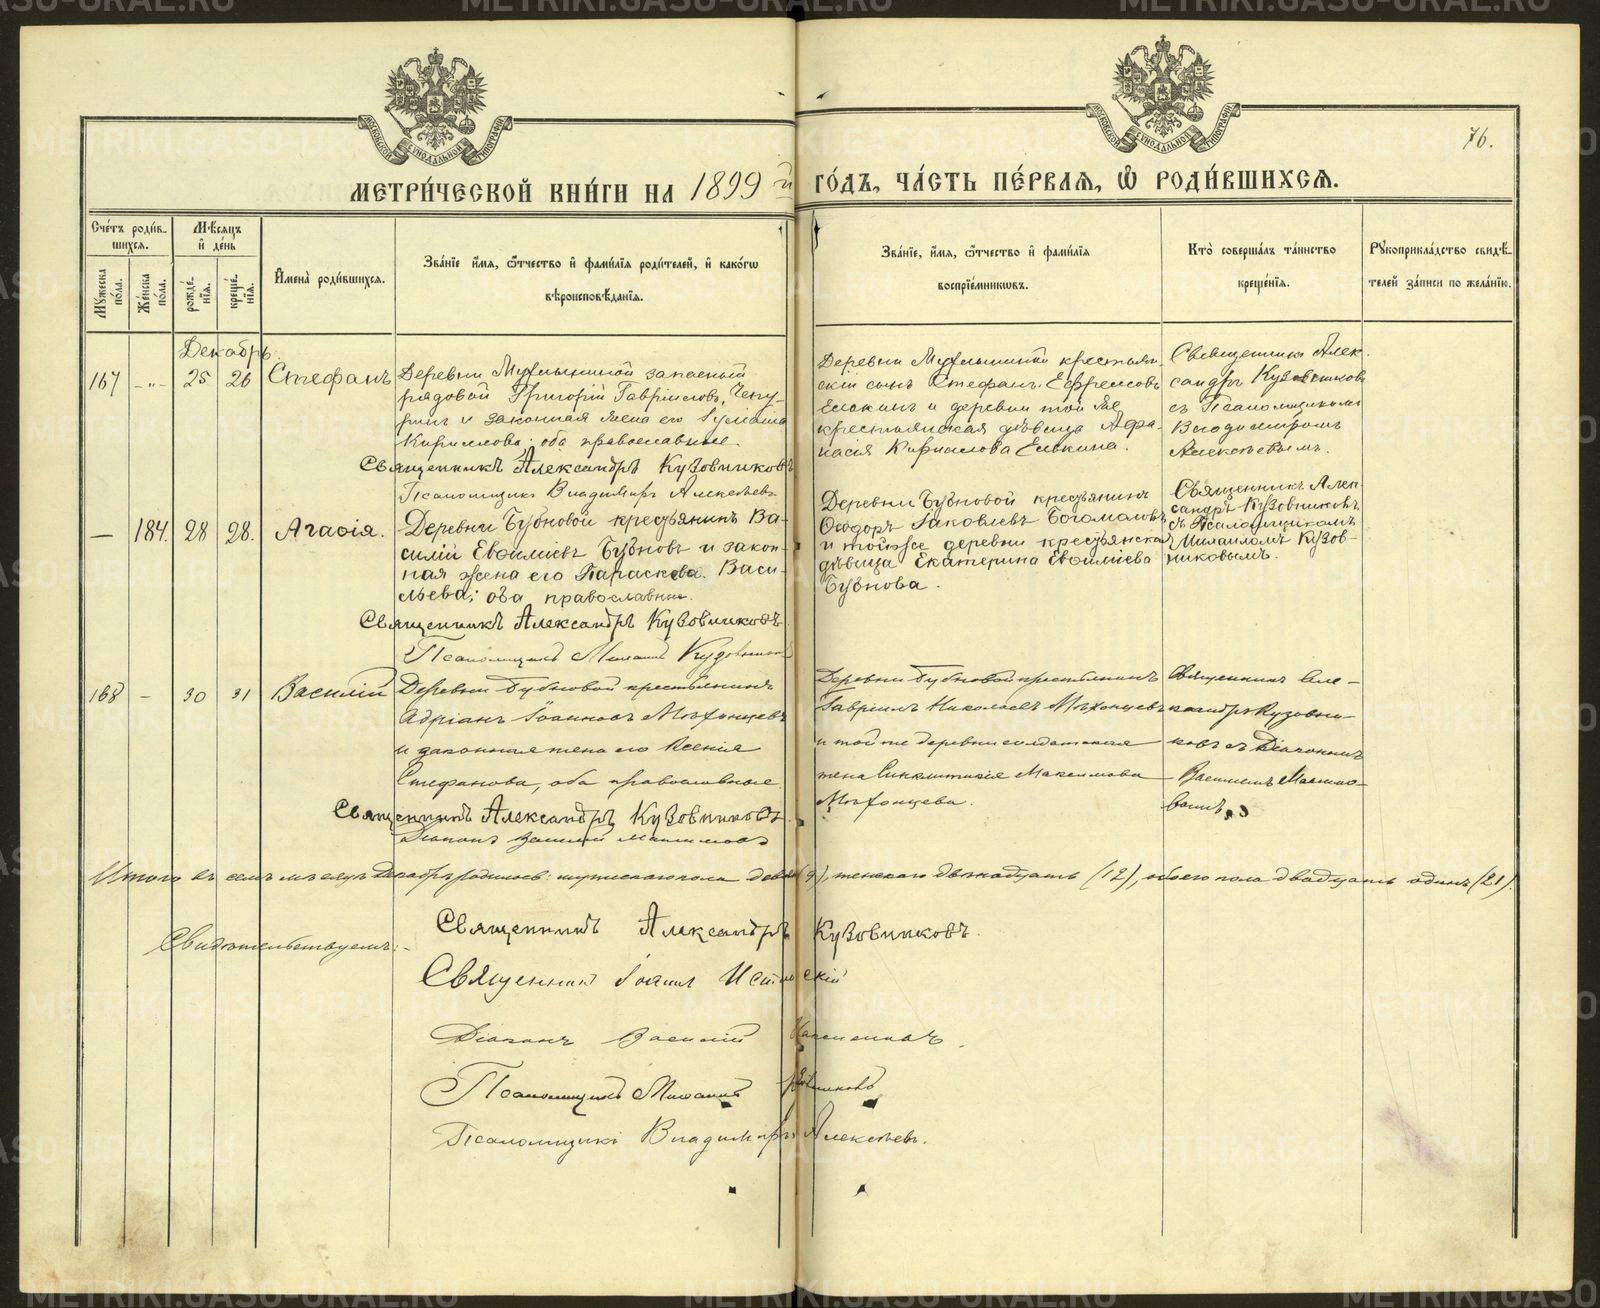 МЕТРИ́ЧЕСКОЙ КНИ́ГИ НА 1899 й ГО́ДЪ, ЧА́СТЬ ПЕ́РВАЯ, Ѿ РОДИ́ВШИХСЯ.
76.
Сче́тъ роди́в-
шихся.
Мѣ́сяцъ
и҆ де́нь
Му́жеска
по́ла.
Же́нска
по́ла.
рожде́-
нїя.
креще́-
нїя.
И҆мена̀ роди́вшихся.
Зва́нїе и҆́мя, ѻ҆́тчество и҆ фами́лїя роди́телей, и҆ како́гѡ
вѣроисповѣ́данїя.
Зва́нїе, и҆́мя, ѻ҆́тчество и҆ фами́лїя
воспрїе́мниковъ.
Кто̀ соверша́лъ та́инство
креще́нїя.
Рꙋкоприкла́дство свидѣ́-
телей за́писи по жела́нїю.
Декабрь.
167 - „ - 25 26 Стефанъ
Деревни запасный
рядовой Григорій Гавріиловъ Чепу-
ринъ и законная жена его
Кириллова; оба православные.
Священникъ Александръ Кузовниковъ
Псаломщикъ Владимиръ Алексѣевъ
Деревни крестьян-
скій сынъ Стефанъ Ефремовъ
Елькинъ и деревни той же
крестьянская дѣвица Афа-
насія Кириллова Елькина.
Священникъ Алек-
сандръ Кузовниковъ
съ Псаломщикомъ
Владимиромъ
Алексѣевымъ.
— 184. 28 28. Агафія.
Деревни Бубновой крестьянинъ Ва-
силій Евфиміевъ Бубновъ и закон-
ная жена его Параскева Васи-
льева; оба православные.
Священникъ Александръ Кузовниковъ
Псаломщикъ Михаилъ Кузовниковъ
Деревни Бубновой крестьянинъ
Ѳеодоръ Іаковлевъ Богомоловъ
и тойже деревни крестьянская
дѣвица Екатерина Евфиміева
Бубнова.
Священникъ Алек-
сандръ Кузовниковъ
съ Псаломщикомъ
Михаиломъ Кузов-
никовымъ.
168 — 30 31 Василій
Деревни Бубновой крестьянинъ
Адріанъ Іоанновъ Мѣхонцевъ
и законная жена его Ксенія
Стефанова, оба православные.
Священникъ Александръ Кузовниковъ
Діаконъ Василій
Деревни Бубновой крестьянинъ
Гавріилъ Николаевъ Мѣхонцевъ
и той же деревни солдатская
жена Синклитикія Максимова
Мѣхонцева.
Священникъ Але-
ксандръ Кузовни-
ковъ съ Діакономъ
Василіемъ
Итого въ семъ мѣсяцѣ Декабрѣ родилось: мужескаго пола девять (9), женскаго двѣнадцать (12), обоего пола двадцать одинъ (21).
Свидѣтельствуемъ:
Священникъ Александръ Кузовниковъ.
Священникъ Іоаннъ
Діаконъ Василій
Псаломщикъ Михаилъ Кузовниковъ
Псаломщикъ Владимиръ Алексѣевъ.
METRIKI.GASO-URAL.RU